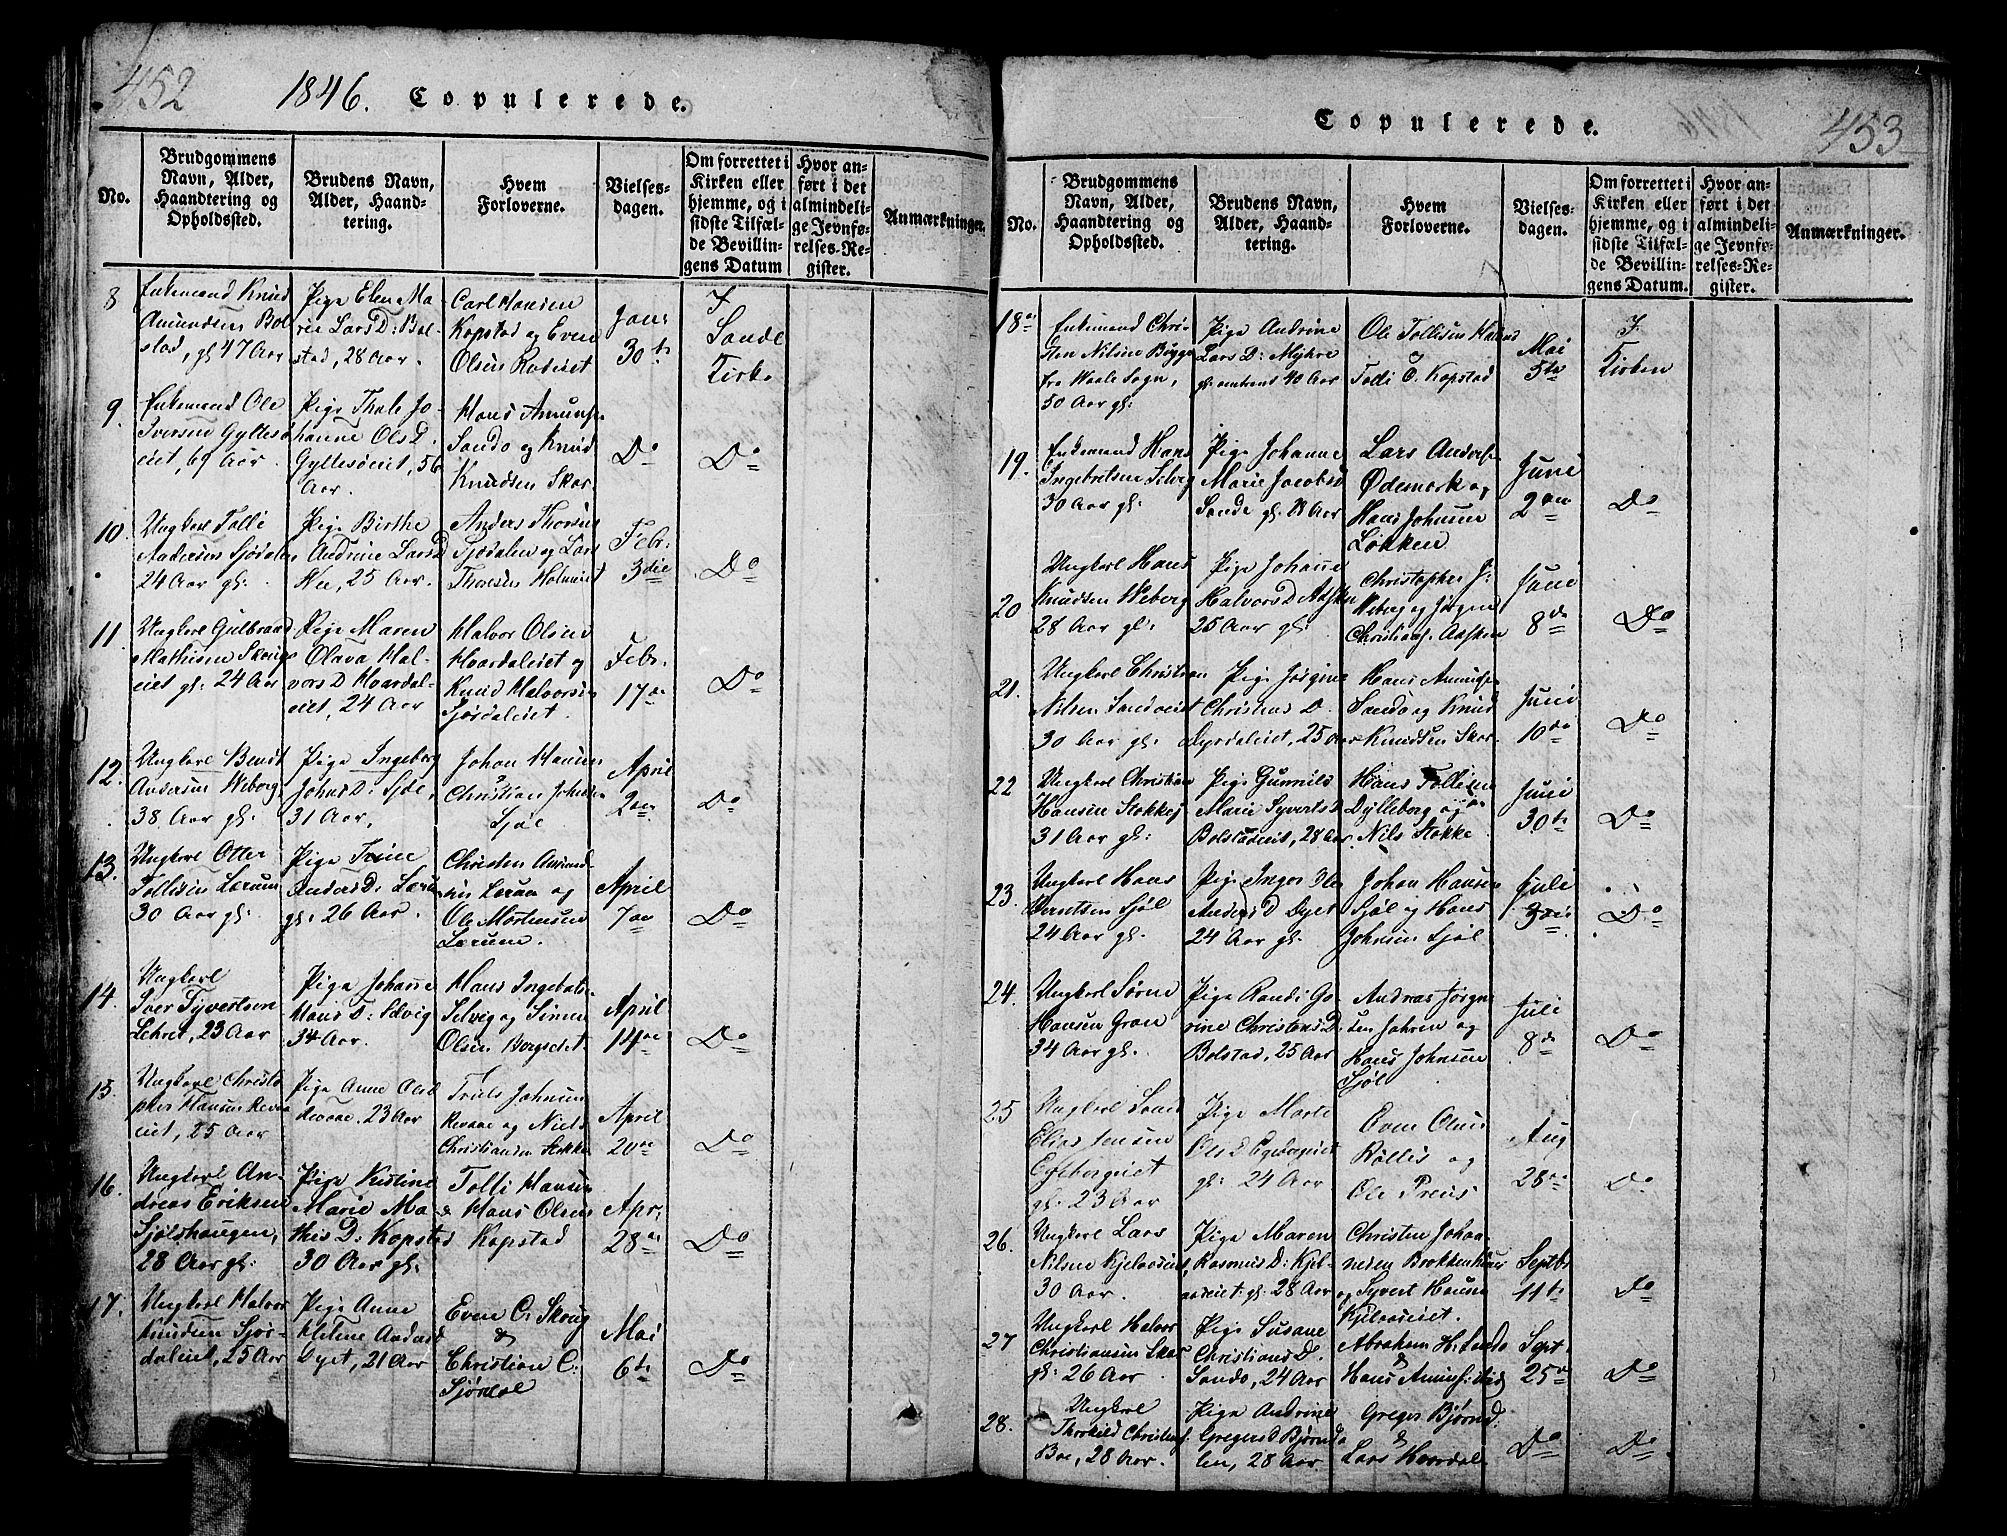 452
1846. Copulerede.
No.
Brudgommens Navn, Alder, Haandtering og Opholdssted.
Brudens Navn, Alder, Haandtering.
Hvem Forloverne.
Vielsesdagen.
Om forrettet i Kirken eller hjemme, og i sidste Tilfælde Bevillingens Datum
Hvor anført i det almindelige Jevnførelses-Register.
Anmærkninger.
8
Enkemand Knud
Amundsen Bolstad, gl 47 Aar
Pige Elen Marie Lars D: Bolstad, 28 Aar.
Carl Hansen
Kopstad og Even
Olsen
Jan:
30te
I
Sande
Kirke
9.
Enkemand Ole
Iversen
eiet, 69 Aar.
Pige Thale Johanne Ols D.
56
Aar.
Hans Amunds.
Sando og Knud
Knudsen Skar.
Do
Do
10.
Ungkarl Tolli
Andersen Sjødalen
24 Aar gl.
Pige Birthe
Andrine Lars D
25 Aar.
Anders Thorsen
Sjødalen og Lars
Thorsen
Febr:
3die
Do
11.
Ungkarl Gulbrand
Mathisen
eiet gl: 24 Aar
Pige Maren
Olava Halvors D Hvardaleiet, 24 Aar
Halvor Olsen
Hvardaleiet og
Knud Halvorsen
Sjødaleiet.
Febr.
17de
Do
12.
Ungkarl Bendt
Andersen Weberg
38 Aar gl.
Pige Ingeborg
Johns D: Sjøl,
31 Aar,
Johan Hansen
Christian Johnsen
Sjøl
April
2den
Do
13.
Ungkarl Otter
Tollisen Lærum
30 Aar gl.
Pige Trine
Anders D: Lærum
gl. 26 Aar.
Christen Amundsen Lærum og
Ole Mortensen
Lærum.
April
7de
Do
14.
Ungkarl
Iver Syvertsen
23 Aar
Pige Johanne
Hans D: Selvig
34 Aar.
Hans Ingebrets.
Selvig og Simen
Olsen
April
14de
Do
15.
Ungkarl Christopher Hansen Revaaeiet, 25 Aar
Pige Anne Ols D
Revaae. 23 Aar
Truls Johnsen
Revaae og Niels
Christiansen Stokke
April
20de
Do
16.
Ungkarl Andreas Eriksen
Sjølshaugen,
28 Aar gl:
Pige Kirstine
Marie Mathis D: Kopstad
30 Aar gl.
Tolli Hansen
& Hans Olsen
Kopstad
Apr:
28de
Do
17.
Ungkarl Halvor
Knudsen Sjødaleiet, 25 Aar
Pige Anne
Helene Anders D
Dyet, 21 Aar
Even C: Skoug
&
Christian C:
Sjødal
Mai
6te
Do
453
Copulerede.
No.
Brudgommens Navn, Alder, Haandtering og Opholdssted.
Brudens Navn, Alder, Haandtering.
Hvem Forloverne.
Vielsesdagen.
Om forrettet i Kirken eller hjemme, og i sidste Tilfælde Bevillingens Datum.
Hvor anført i det almindelige Jevnførelses-Register.
Anmærkninger.
18
Enkemand Christen Nilsen Bügge
fra Haale Sogn,
50 Aar gl:
Pige Andrine
Lars D: Myhre
gl. omtrent 40 Aar
Ole Tollisen
Tolli C. Kopstad
Mai
5te
I
Kirken
19.
Enkemand Hans
Ingebretsen Selvig
30 Aar gl:
Pige Johanne
Marie Jacobs D
Sande gl. 28 Aar
Lars Anders.
Ødemark og
Hans Johnsen
Løkken
Juni
2den
Do
20
Ungkarl Hans
Knudsen Weberg
28 Aar gl:
Pige Johanne
Halvors D
25 Aar gl:
Christopher J:
Weberg og Jørgen
Christians.
Juni
8de
Do
21.
Ungkarl Christian
Nilsen Sandeiet
30 Aar gl:
Pige Jørgine
Christens D.
Dyrdaleiet, 25 Aar
Hans Amunds.
Sando og Knud
Knudsen Skar.
Juni
10de
Do
22
Ungkarl Christian
Hansen Stokkej
31 Aar gl:
Pige Gunnild
Marie Syverts D
Bolstadeiet, 28 Aar
Hans Tollisen
Dylleborg og
Nils Stokke
Juni
30te
Do
23.
Ungkarl Hans
Berntsen Sjøl
24 Aar gl.
Pige Inger
Anders D Dyet
24 Aar gl.
Johan Hansen
Sjøl og Hans
Johnsen Sjøl
Juli
3die
Do
24.
Ungkarl Søren
Hansen Gran
34 Aar gl.
Pige Randi Gorine Christens D.
Bolstad, 25 Aar
Andreas Jørgensen Jahren og
Hans Johnsen
Sjøl
Juli
8de
Do
25
Ungkarl
Elias Jensen
Egebergeiet
gl: 23 Aar
Pige Marte
Ols D Egebergeiet
gl: 24 Aar
Even Olsen
og
Ole Preus
Aug
28de
Do
26.
Ungkarl Lars
Nilsen Kjelaaseiet,
30 Aar.
Pige Maren
Rasmus D: Kjelaaseiet gl: 28 Aar
Christen Johannesen
og Syvert Hansen
Kjelaaseiet.
Septb
11te
Do
27
Ungkarl Halvor
Christiansen Skar
gl: 26 Aar
Pige Susane
Christians D.
Sando, 24 Aar
Abraham H. Sando
&
Hans Amunds:
Sept.
25de
Do
28.
Ungkarl
Thorkild Christians:
Boe, 28 Aar.
Pige Andrine
Gregers D Bjørndalen, 28 Aar
Greger Bjørnd:
&
Lars Hvardal
Do
Do